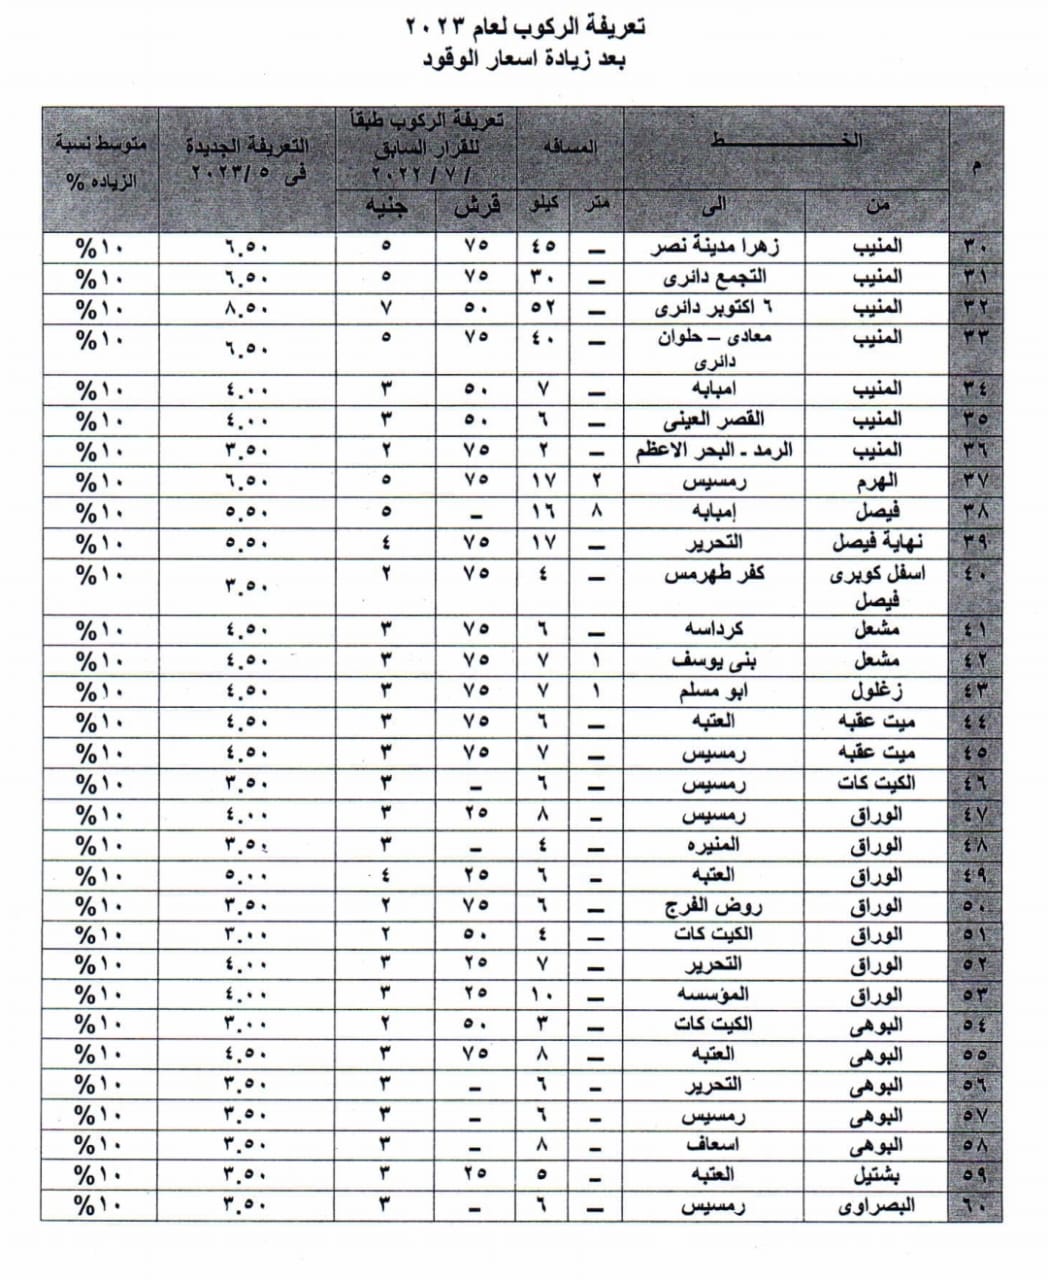 تعريفة الركوب لعام ٢٠٢٣
بعد زيادة اسعار الوقود
م الخــــــــــــط المسافه تعريفة الركوب طبقاً للقرار السابق / ٧ / ٢٠٢٢ التعريفة الجديدة فى ٥ /٢٠٢٣ متوسط نسبة الزياده %
من الى متر كيلو قرش جنيه
٣٠ المنيب زهرا مدينة نصر – ٤٥ ٧٥ ٥ ٦.٥٠ ١٠%
٣١ المنيب التجمع دائرى – ٣٠ ٧٥ ٥ ٦.٥٠ ١٠%
٣٢ المنيب ٦ اكتوبر دائرى – ٥٢ ٥٠ ٧ ٨.٥٠ ١٠%
٣٣ المنيب معادى – حلوان دائرى – ٤٠ ٧٥ ٥ ٦.٥٠ ١٠%
٣٤ المنيب امبابه – ٧ ٥٠ ٣ ٤.٠٠ ١٠%
٣٥ المنيب القصر العينى – ٦ ٥٠ ٣ ٤.٠٠ ١٠%
٣٦ المنيب الرمد - البحر الاعظم – ٢ ٧٥ ٢ ٣.٥٠ ١٠%
٣٧ الهرم رمسيس ٢ ١٧ ٧٥ ٥ ٦.٥٠ ١٠%
٣٨ فيصل إمبابه ٨ ١٦ – ٥ ٥.٥٠ ١٠%
٣٩ نهاية فيصل التحرير – ١٧ ٧٥ ٤ ٥.٥٠ ١٠%
٤٠ اسفل كوبرى فيصل كفر طهرمس – ٤ ٧٥ ٢ ٣.٥٠ ١٠%
٤١ مشعل كرداسه – ٦ ٧٥ ٣ ٤.٥٠ ١٠%
٤٢ مشعل بنى يوسف ١ ٧ ٧٥ ٣ ٤.٥٠ ١٠%
٤٣ زغلول ابو مسلم ١ ٧ ٧٥ ٣ ٤.٥٠ ١٠%
٤٤ ميت عقبه العتبه – ٦ ٧٥ ٣ ٤.٥٠ ١٠%
٤٥ ميت عقبه رمسيس – ٧ ٧٥ ٣ ٤.٥٠ ١٠%
٤٦ الكيت كات رمسيس – ٦ – ٣ ٣.٥٠ ١٠%
٤٧ الوراق رمسيس – ٨ ٢٥ ٣ ٤.٠٠ ١٠%
٤٨ الوراق المنيره – ٤ – ٣ ٣.٥٠ ١٠%
٤٩ الوراق العتبه – ٦ ٢٥ ٤ ٥.٠٠ ١٠%
٥٠ الوراق روض الفرج – ٦ ٧٥ ٢ ٣.٥٠ ١٠%
٥١ الوراق الكيت كات – ٤ ٥٠ ٢ ٣.٠٠ ١٠%
٥٢ الوراق التحرير – ٧ ٢٥ ٣ ٤.٠٠ ١٠%
٥٣ الوراق المؤسسه – ١٠ ٢٥ ٣ ٤.٠٠ ١٠%
٥٤ البوهى الكيت كات – ٣ ٥٠ ٢ ٣.٠٠ ١٠%
٥٥ البوهى العتبه – ٨ ٧٥ ٣ ٤.٥٠ ١٠%
٥٦ البوهى التحرير – ٦ – ٣ ٣.٥٠ ١٠%
٥٧ البوهى رمسيس – ٦ – ٣ ٣.٥٠ ١٠%
٥٨ البوهى اسعاف – ٨ – ٣ ٣.٥٠ ١٠%
٥٩ بشتيل العتبه – ٥ ٢٥ ٣ ٣.٥٠ ١٠%
٦٠ البصراوى رمسيس – ٦ – ٣ ٣.٥٠ ١٠%